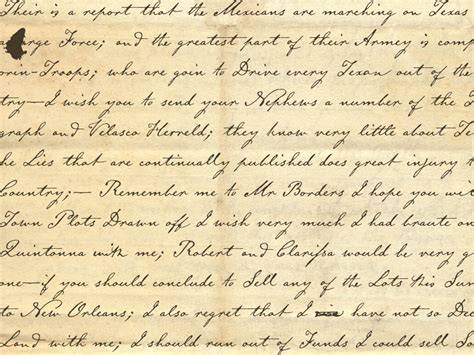 Their is a report that the Mexicans are marching on Texas
arge Force; and the greatest part of their Armey is comp
orin-Troops; who are goin to Drive every Texan out of the
try— I wish you to send your Nephews a number of the T
graph and Velasco Herreld; they know very little about Te
he Lies that are continually published does great injury t
Country;— Remember me to Mr Borders I hope you wi
Town Plots Drawn off I wish very much I had braute on
Quintonna with me; Robert and Clarissa would be very g
one— if you should conclude to Sell any of the Lots this Sum
to New Orleans; I also regret that I have not so Dee
Land with me; I should run out of Funds I could sell So